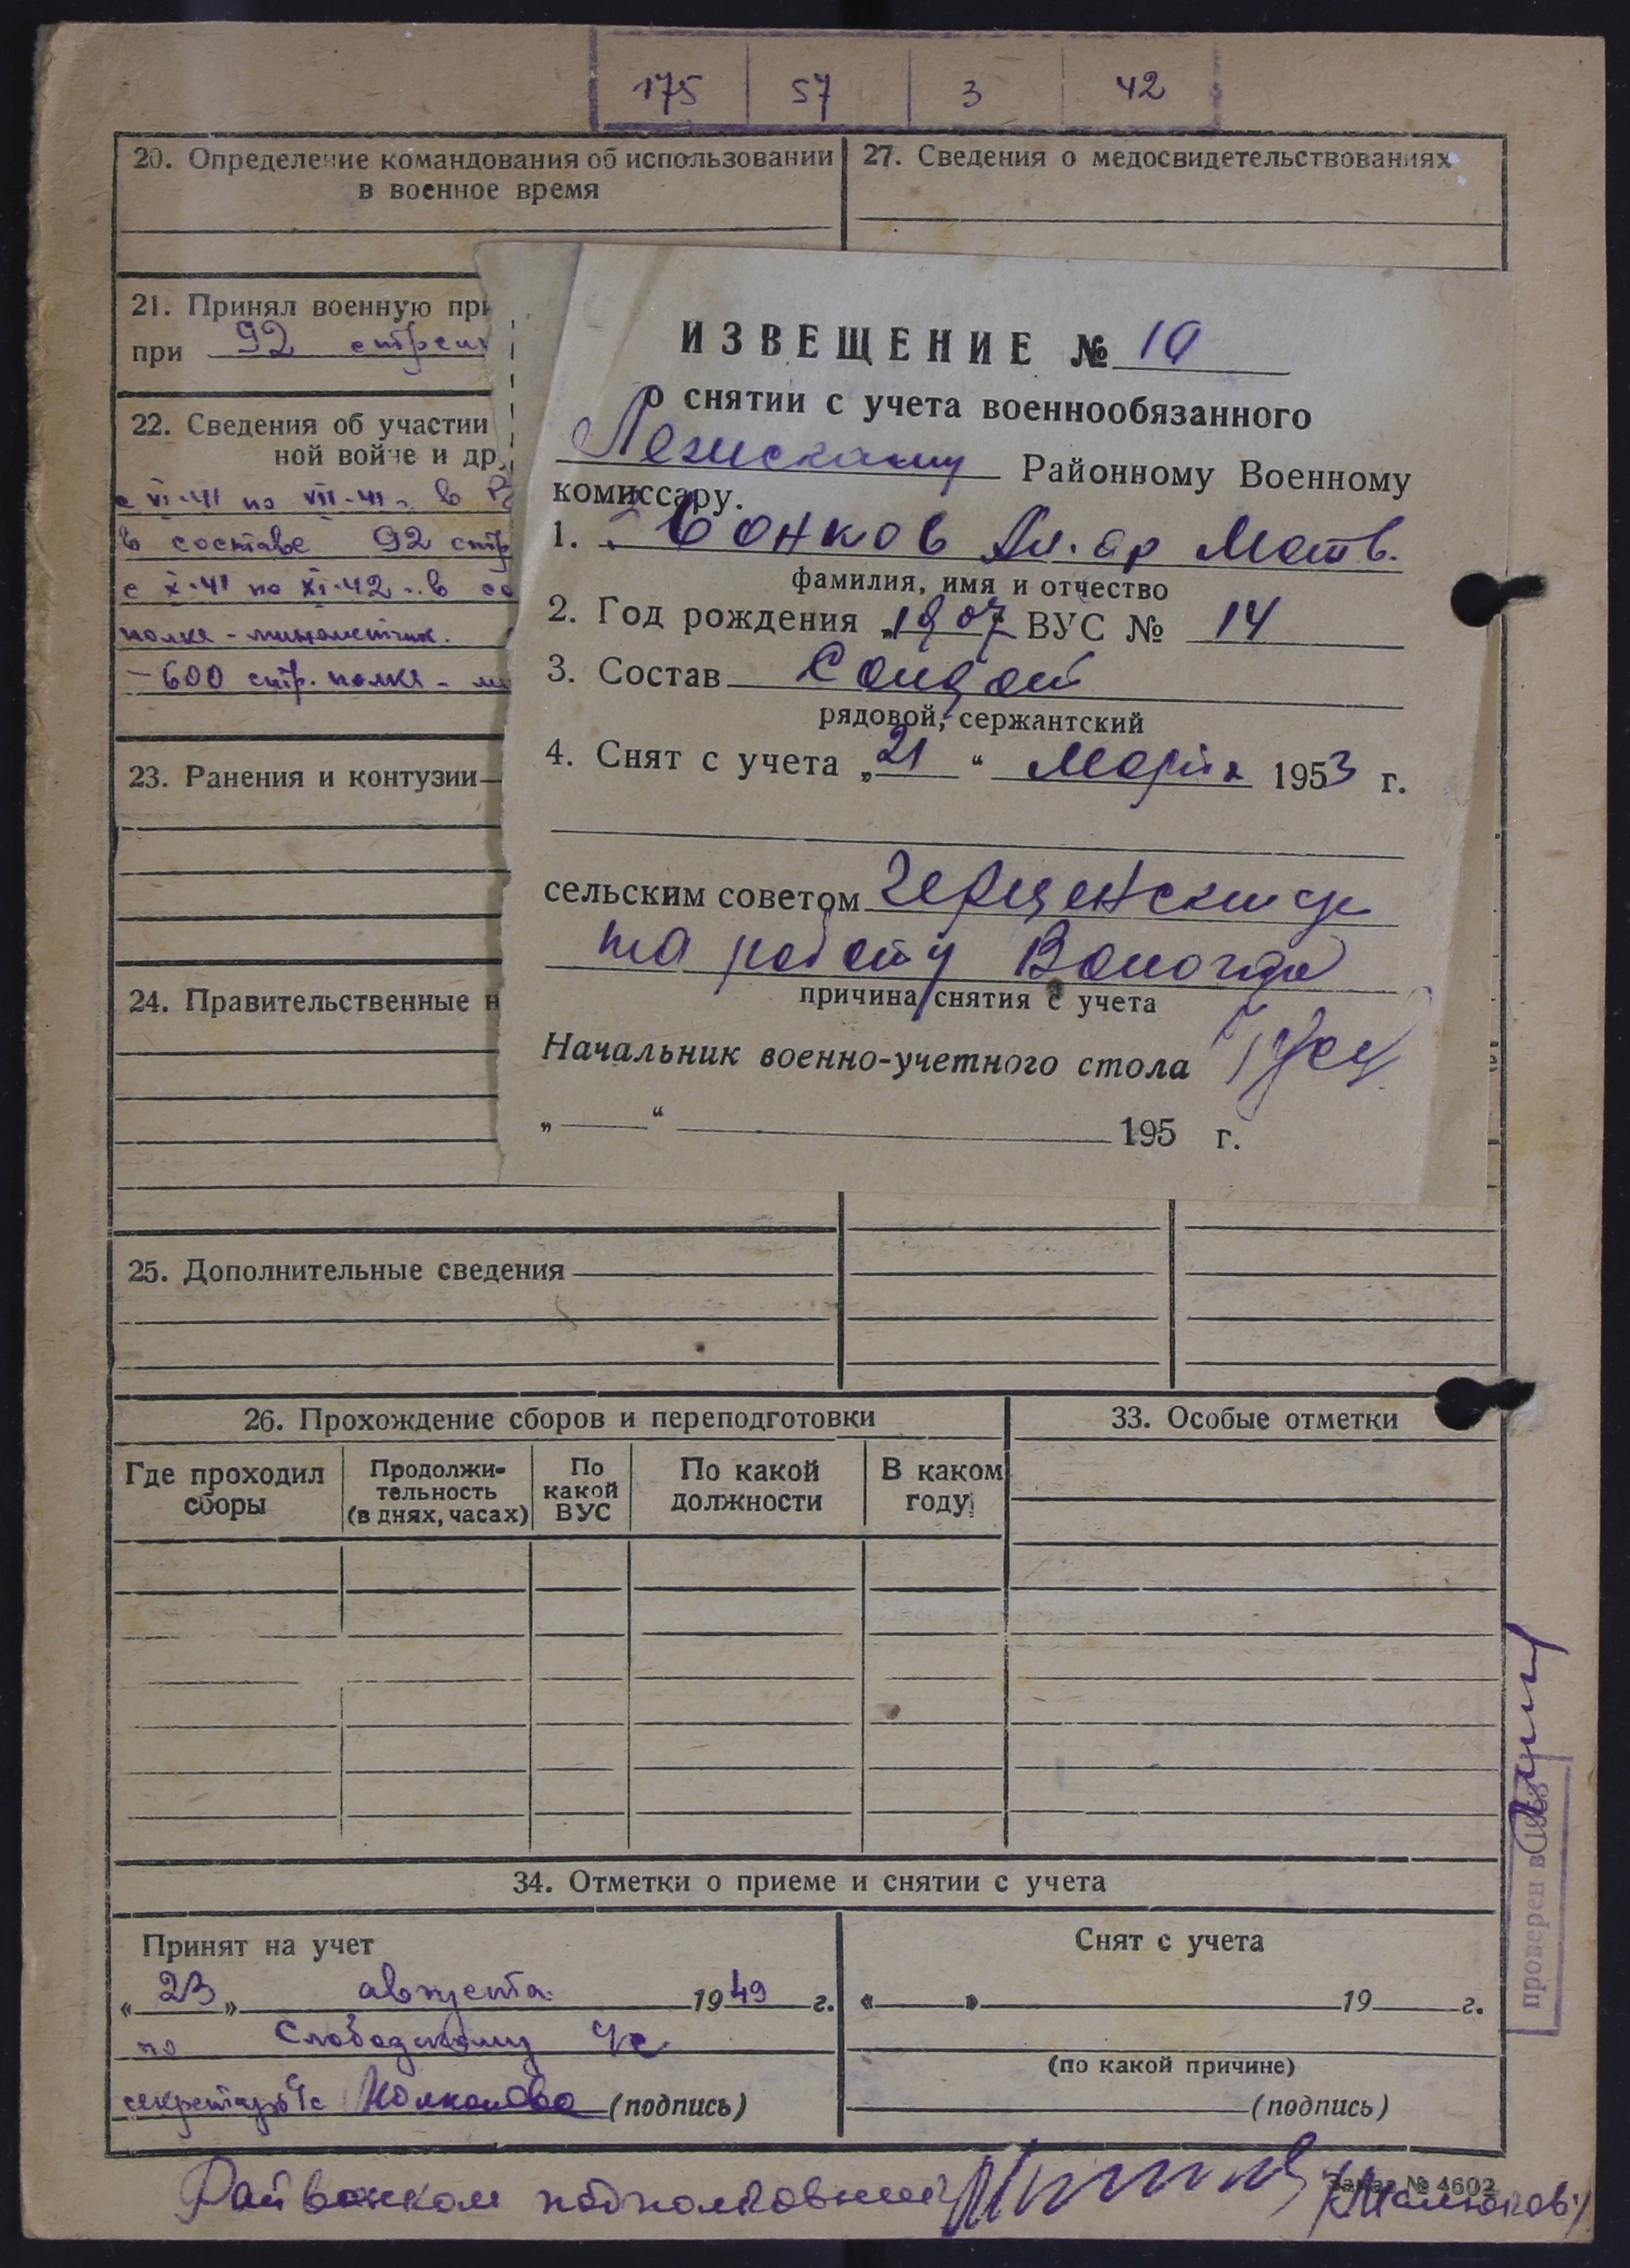 175 57 3 42
20. Определение командования об использовании
в военное время
27. Сведения о медосвидетельствованиях
21. Принял военную при
при 92 стрелк
22. Сведения об участии
ной войне и др.
с VI-41 по VII-41 г. в
в составе 92 стр
с X-41 по XI-42 г. в со
полка - минометчик.
- 600 стр. полка - м
23. Ранения и контузии
24. Правительственные н
ИЗВЕЩЕНИЕ № 10
о снятии с учета военнообязанного
Лежскому Районному Военному
комиссару.
1. Вонков Ал.др Матв.
фамилия, имя и отчество
2. Год рождения 1907 ВУС № 14
3. Состав Солдат
рядовой, сержантский
4. Снят с учета „21“ Марта 1953 г.
сельским советом
на работу Вологда
причина снятия с учета
Начальник военно-учетного стола
„ “ 195 г.
25. Дополнительные сведения
26. Прохождение сборов и переподготовки
33. Особые отметки
Где проходил сборы
Продолжи-
тельность
(в днях, часах)
По
какой
ВУС
По какой
должности
В каком
году
34. Отметки о приеме и снятии с учета
Принят на учет
«23» августа 1949 г.
по Слободскому с/с
секретарь с/с (подпись)
Снят с учета
« » 19 г.
(по какой причине)
(подпись)
проверен в 1953
Райвоенком подполковник
Заказ № 4602